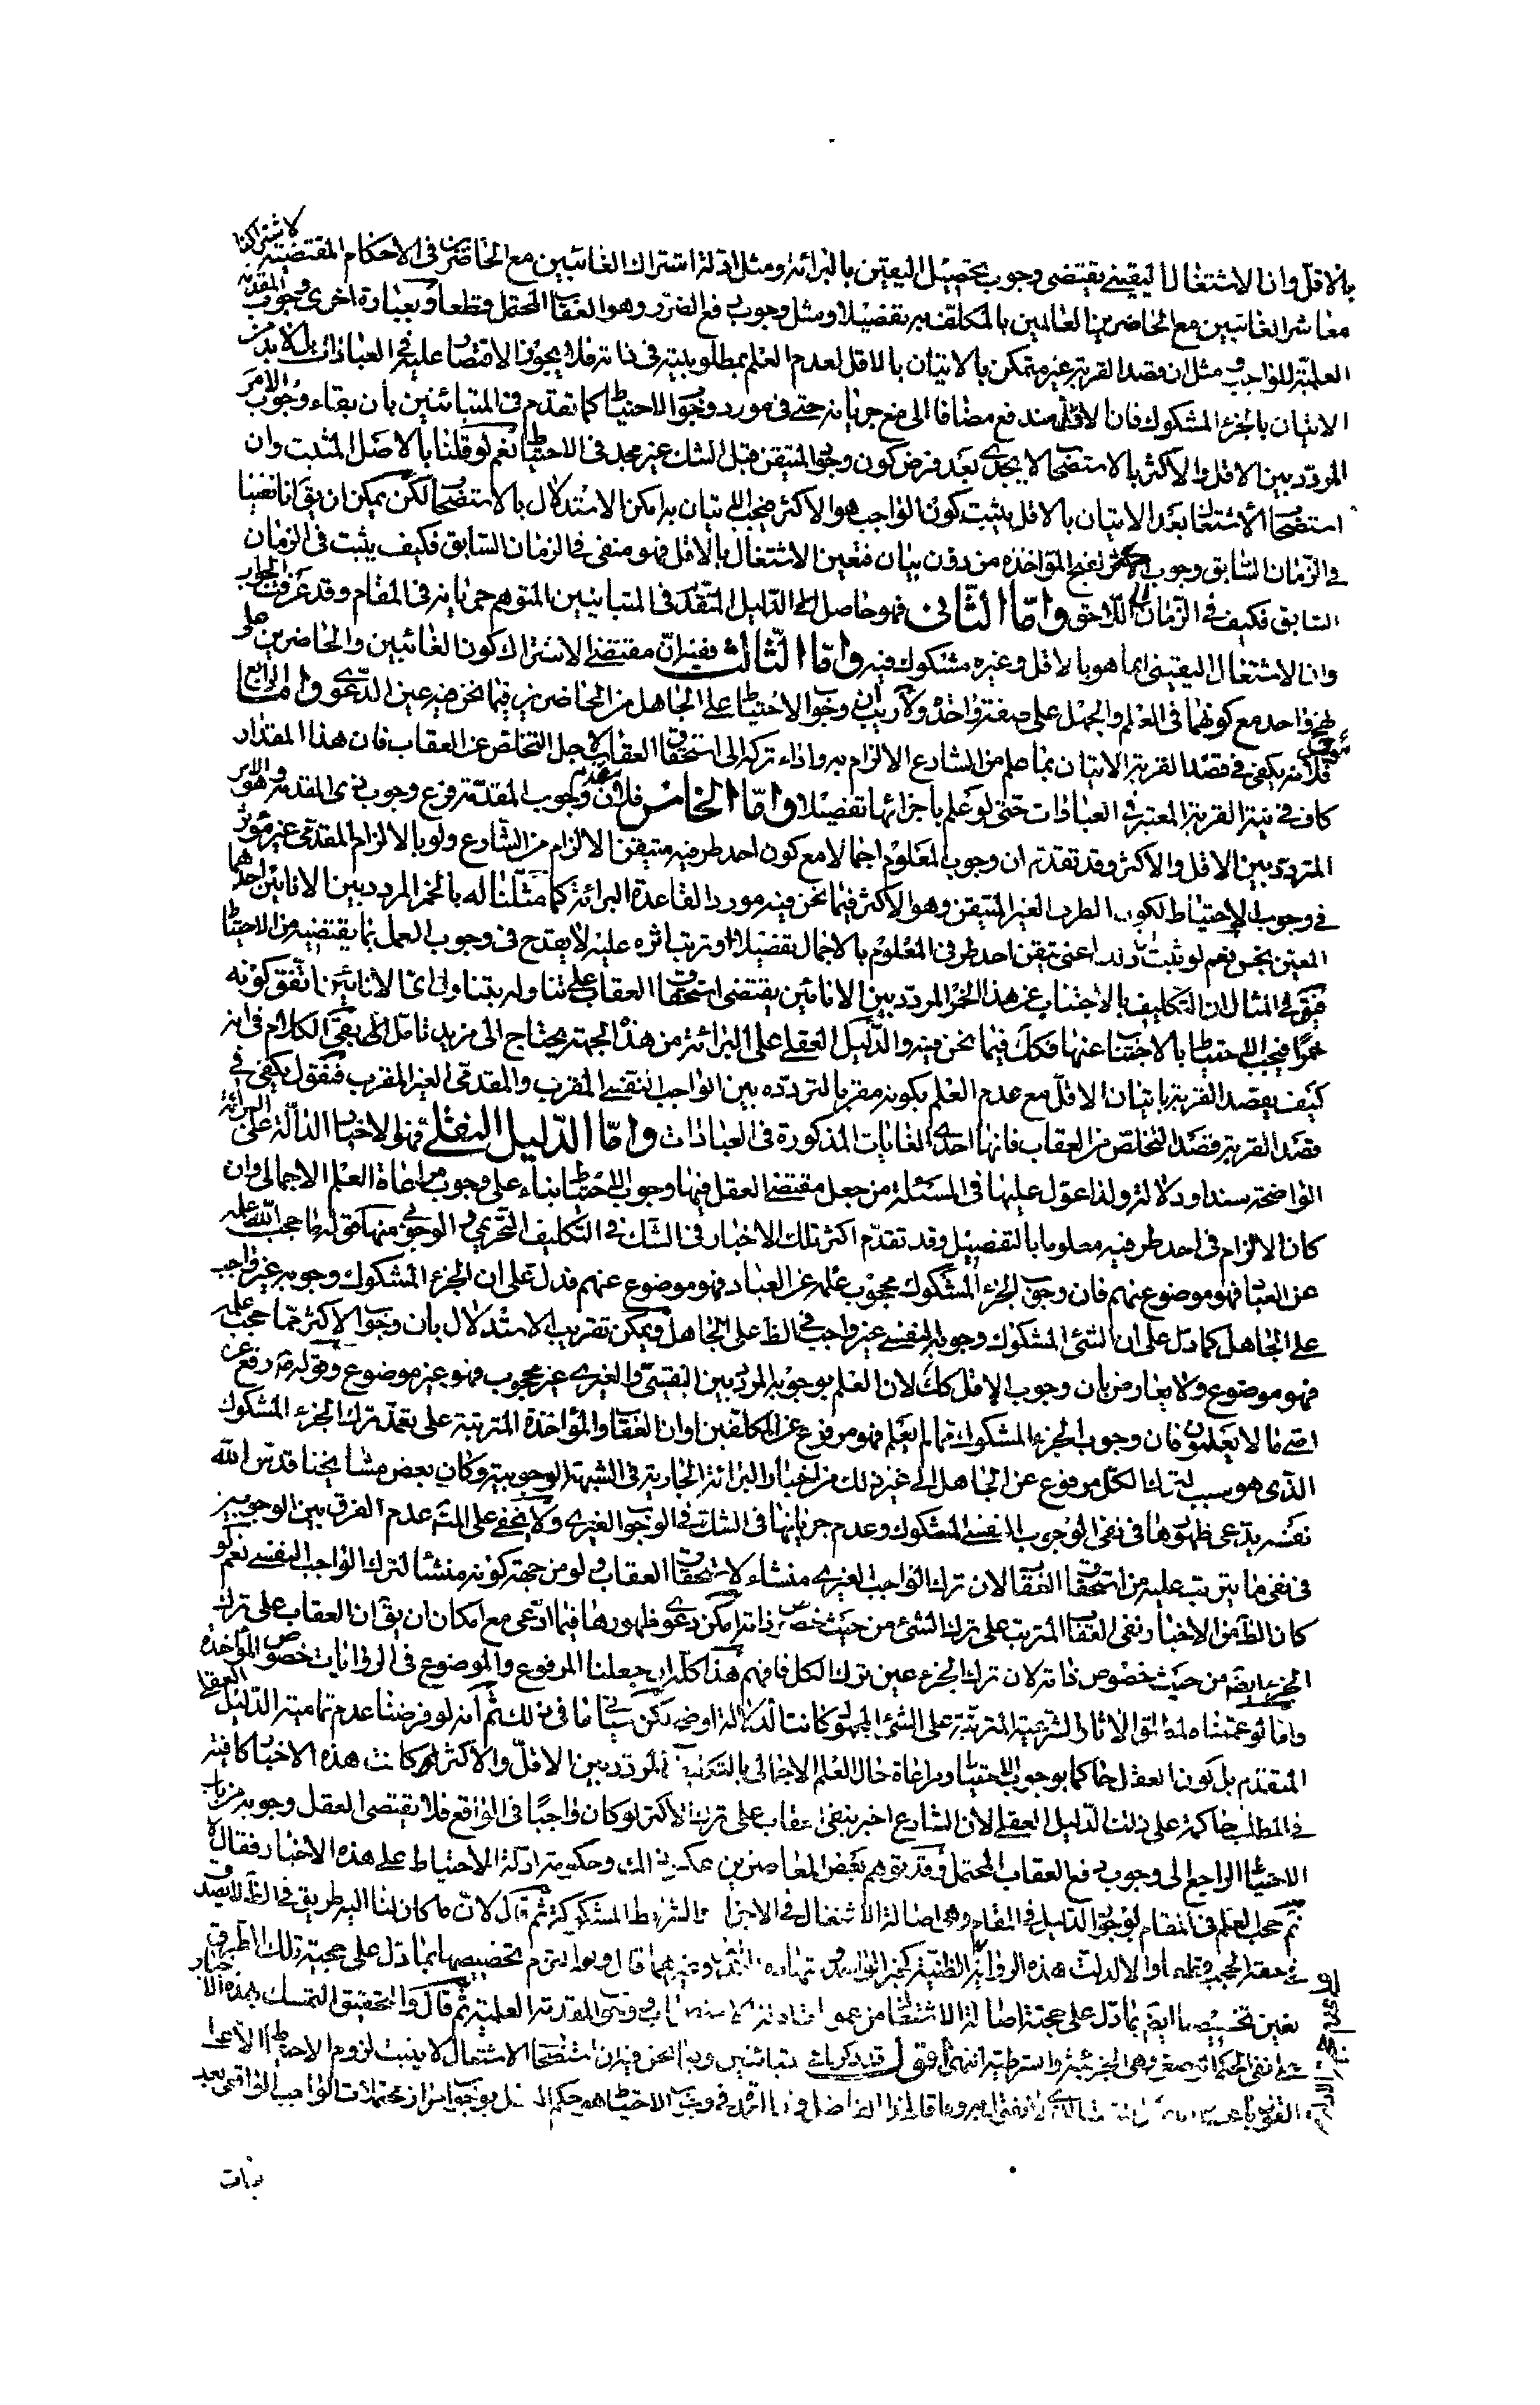 بالاقل وان الاشتغال اليقينى يقتضى وجوب تحصيل اليقين بالبرائة ومثل ادلة اشتراك الغائبين مع الحاضرين فى الاحكام المقتضية لاشتراكنا
معاشر الغائبين مع الحاضرين العالمين بالمكلف به تفصيلا ومثل وجوب دفع الضرر وهو العقاب المحتمل قطعا وبعبارة اخرى وجوب المقدمة
العلمية للواجب ومثل ان قصد القربة غير متمكن بالاتيان بالاقل لعدم العلم بمطلوبيته فى ذاته فلا يجوز الاقتصار عليه فى العبادات بل لا بد من
الاتيان بالجزء المشكوك فان الاول مندفع مضافا الى منع جريانه حتى فى مورد وجوب الاحتياط كما تقدم فى المتباينين بان بقاء وجوب الامر
المردد بين الاقل والاكثر بالاستصحاب لا يجدى بعد فرض كون وجود المتيقن قبل الشك غير مجد فى الاحتياط نعم لو قلنا بالاصل المثبت وان
استصحاب الاشتغال بعد الاتيان بالاقل يثبت كون الواجب هو الاكثر فيجب الاتيان به امكن الاستدلال بالاستصحاب لكن يمكن ان يق انا نفينا
فى الزمان السابق وجوب الاكثر لقبح المؤاخذة من دون بيان فتعين الاشتغال بالاقل فهو منفى فى الزمان السابق فكيف يثبت فى الزمان
السابق فكيف فى الزمان اللاحق واما الثانى فهو حاصل الدليل المتقدم فى المتباينين المتوهم جريانه فى المقام وقد عرفت الجواب
وان الاشتغال اليقينى انما هو بالاقل وغيره مشكوك فيه واما الثالث ففيه ان مقتضى الاشتراك كون الغائبين والحاضرين على
نهج واحد مع كونهما فى العلم والجهل على صفة واحدة ولا ريب ان وجوب الاحتياط على الجاهل من الحاضرين فيما نحن فيه عين الدعوى واما الرابع
فلانه يكفى فى قصد القربة الاتيان بما علم من الشارع الالزام به واداء تركه الى استحقاق العقاب لاجل التخلص عن العقاب فان هذا المقدار
كاف فى نية القربة المعتبرة فى العبادات حتى لو علم باجزائها تفصيلا واما الخامس فلان وجوب المقدمة فرع وجوب ذى المقدمة وهو الامر
المتردد بين الاقل والاكثر وقد تقدم ان وجوب المعلوم اجمالا مع كون احد طرفيه متيقن الالزام من الشارع ولو بالالزام المقدمى غير مؤثر
فى وجوب الاحتياط لكون الطرف الغير المتيقن وهو الاكثر فيما نحن فيه موردا لقاعدة البرائة كما مثلنا له بالخمر المردد بين الانائين احدهما
المعين نجس نعم لو ثبت ان ذلك اعنى تيقن احد طرفى المعلوم بالاجمال تفصيلا او ترتب اثره عليه لا يقدح فى وجوب العمل بما يقتضيه من الاحتياط
فيق فى المثال ان التكليف بالاجتناب عن هذا الخمر المردد بين الانائين يقتضى استحقاق العقاب على تناوله بتناول اى الانائين اتفق كونه
خمرا فيجب الاحتياط بالاجتناب عنهما فكك فيما نحن فيه والدليل العقلى على البرائة من هذه الجهة يحتاج الى مزيد تامل بقى الكلام فى انه
كيف يقصد القربة باتيان الاقل مع عدم العلم بكونه مقربا لتردده بين الواجب النفسى المقرب والمقدمى الغير المقرب فنقول يكفى فى
قصد القربة قصد التخلص من العقاب فانها احدى الغايات المذكورة فى العبادات واما الدليل النقلى فهو الاخبار الدالة على البرائة
الواضحة سندا ودلالة ولذا عول عليها فى المسئلة من جعل مقتضى العقل فيها وجوب الاحتياط بناء على وجوب مراعاة العلم الاجمالى وان
كان الالزام فى احد طرفيه معلوما بالتفصيل وقد تقدم اكثر تلك الاخبار فى الشك فى التكليف التحريمى والوجوبى منها قوله ما حجب الله علمه
عن العباد فهو موضوع عنهم فان وجوب الجزء المشكوك محجوب علمه عن العباد فهو موضوع عنهم فدل على ان الجزء المشكوك وجوبه غير واجب
على الجاهل كما دل على ان الشئ المشكوك وجوبه النفسى غير واجب فى الظ على الجاهل ويمكن تقريب الاستدلال بان وجوب الاكثر مما حجب علمه
فهو موضوع ولا يعارض بان وجوب الاقل كك لان العلم بوجوبه المردد بين النفسى والغيرى غير محجوب فهو غير موضوع وقوله ص رفع عن
امتى ما لا يعلمون فان وجوب الجزء المشكوك مما لم يعلم فهو مرفوع عن المكلفين او ان العقاب والمؤاخذة المترتبة على تعمد ترك الجزء المشكوك
الذى هو سبب لترك الكل مرفوع عن الجاهل الى غير ذلك من اخبار البرائة الجارية فى الشبهة الوجوبية وكان بعض مشايخنا قدس الله
نفسه يدعى ظهورها فى نفى الوجوب النفسى المشكوك وعدم جريانها فى الشك فى الوجوب الغيرى ولا يخفى على المتامل عدم الفرق بين الوجوبين
فى نفى ما يترتب عليه من استحقاق العقاب لان ترك الواجب الغيرى منشاء لاستحقاق العقاب ولو من جهة كونه منشأ لترك الواجب النفسى نعم لو
كان الظ من الاخبار نفى العقاب المترتب على ترك الشئ من حيث خصوص ذاته امكن دعوى ظهورها فيما ادعى مع امكان ان يق ان العقاب على ترك
الجزء ايضا من حيث خصوص ذاته لان ترك الجزء عين ترك الكل فافهم هذا كله ان جعلنا المرفوع والموضوع فى الروايات خصوص المؤاخذة
واما لو عممناه لمطلق الاثار الشرعية المترتبة على الشئ المجهول كانت الدلالة اوضح لكن سياتى ما فى ذلك ثم انه لو فرضنا عدم تمامية الدليل العقلى
المتقدم بل كون العقل حاكما بوجوب الاحتياط ومراعاة حال العلم الاجمالى بالتكليف المردد بين الاقل والاكثر كانت هذه الاخبار كافية
فى المطلب حاكمة على ذلك الدليل العقلى لان الشارع اخبر بنفى العقاب على ترك الاكثر لو كان واجبا فى الواقع فلا يقتضى العقل وجوبه من باب
الاحتياط الراجع الى وجوب دفع العقاب المحتمل وقد توهم بعض المعاصرين عكس ذلك وحكومة ادلة الاحتياط على هذه الاخبار فقال لا
نم حجب العلم فى المقام لوجود الدليل فى المقام وهى اصالة الاشتغال فى الاجزاء والشرائط المشكوكة ثم قال لان ما كان لنا اليه طريق فى الظ لا يصدق
فى حقه الحجب قطعا والا لدلت هذه الرواية الظنية كخبر الواحد وشهادة العدلين وغيرهما قال ولو التزم تخصيصها بما دل على حجية تلك الطرق
تعين تخصيصها ايضا بما دل على حجية اصالة الاشتغال من عمومات ادلة الاستصحاب ووجوب المقدمة العلمية ثم قال والتحقيق التمسك بهذه الاخبار
على نفى الحكم الوضعى وهى الجزئية والشرطية انتهى اقول قد ذكرنا فى المتباينين وفيما نحن فيه ان استصحاب الاشتغال لا يثبت لزوم الاحتياط الا على
القول باعتبار الاصل المثبت
بذات